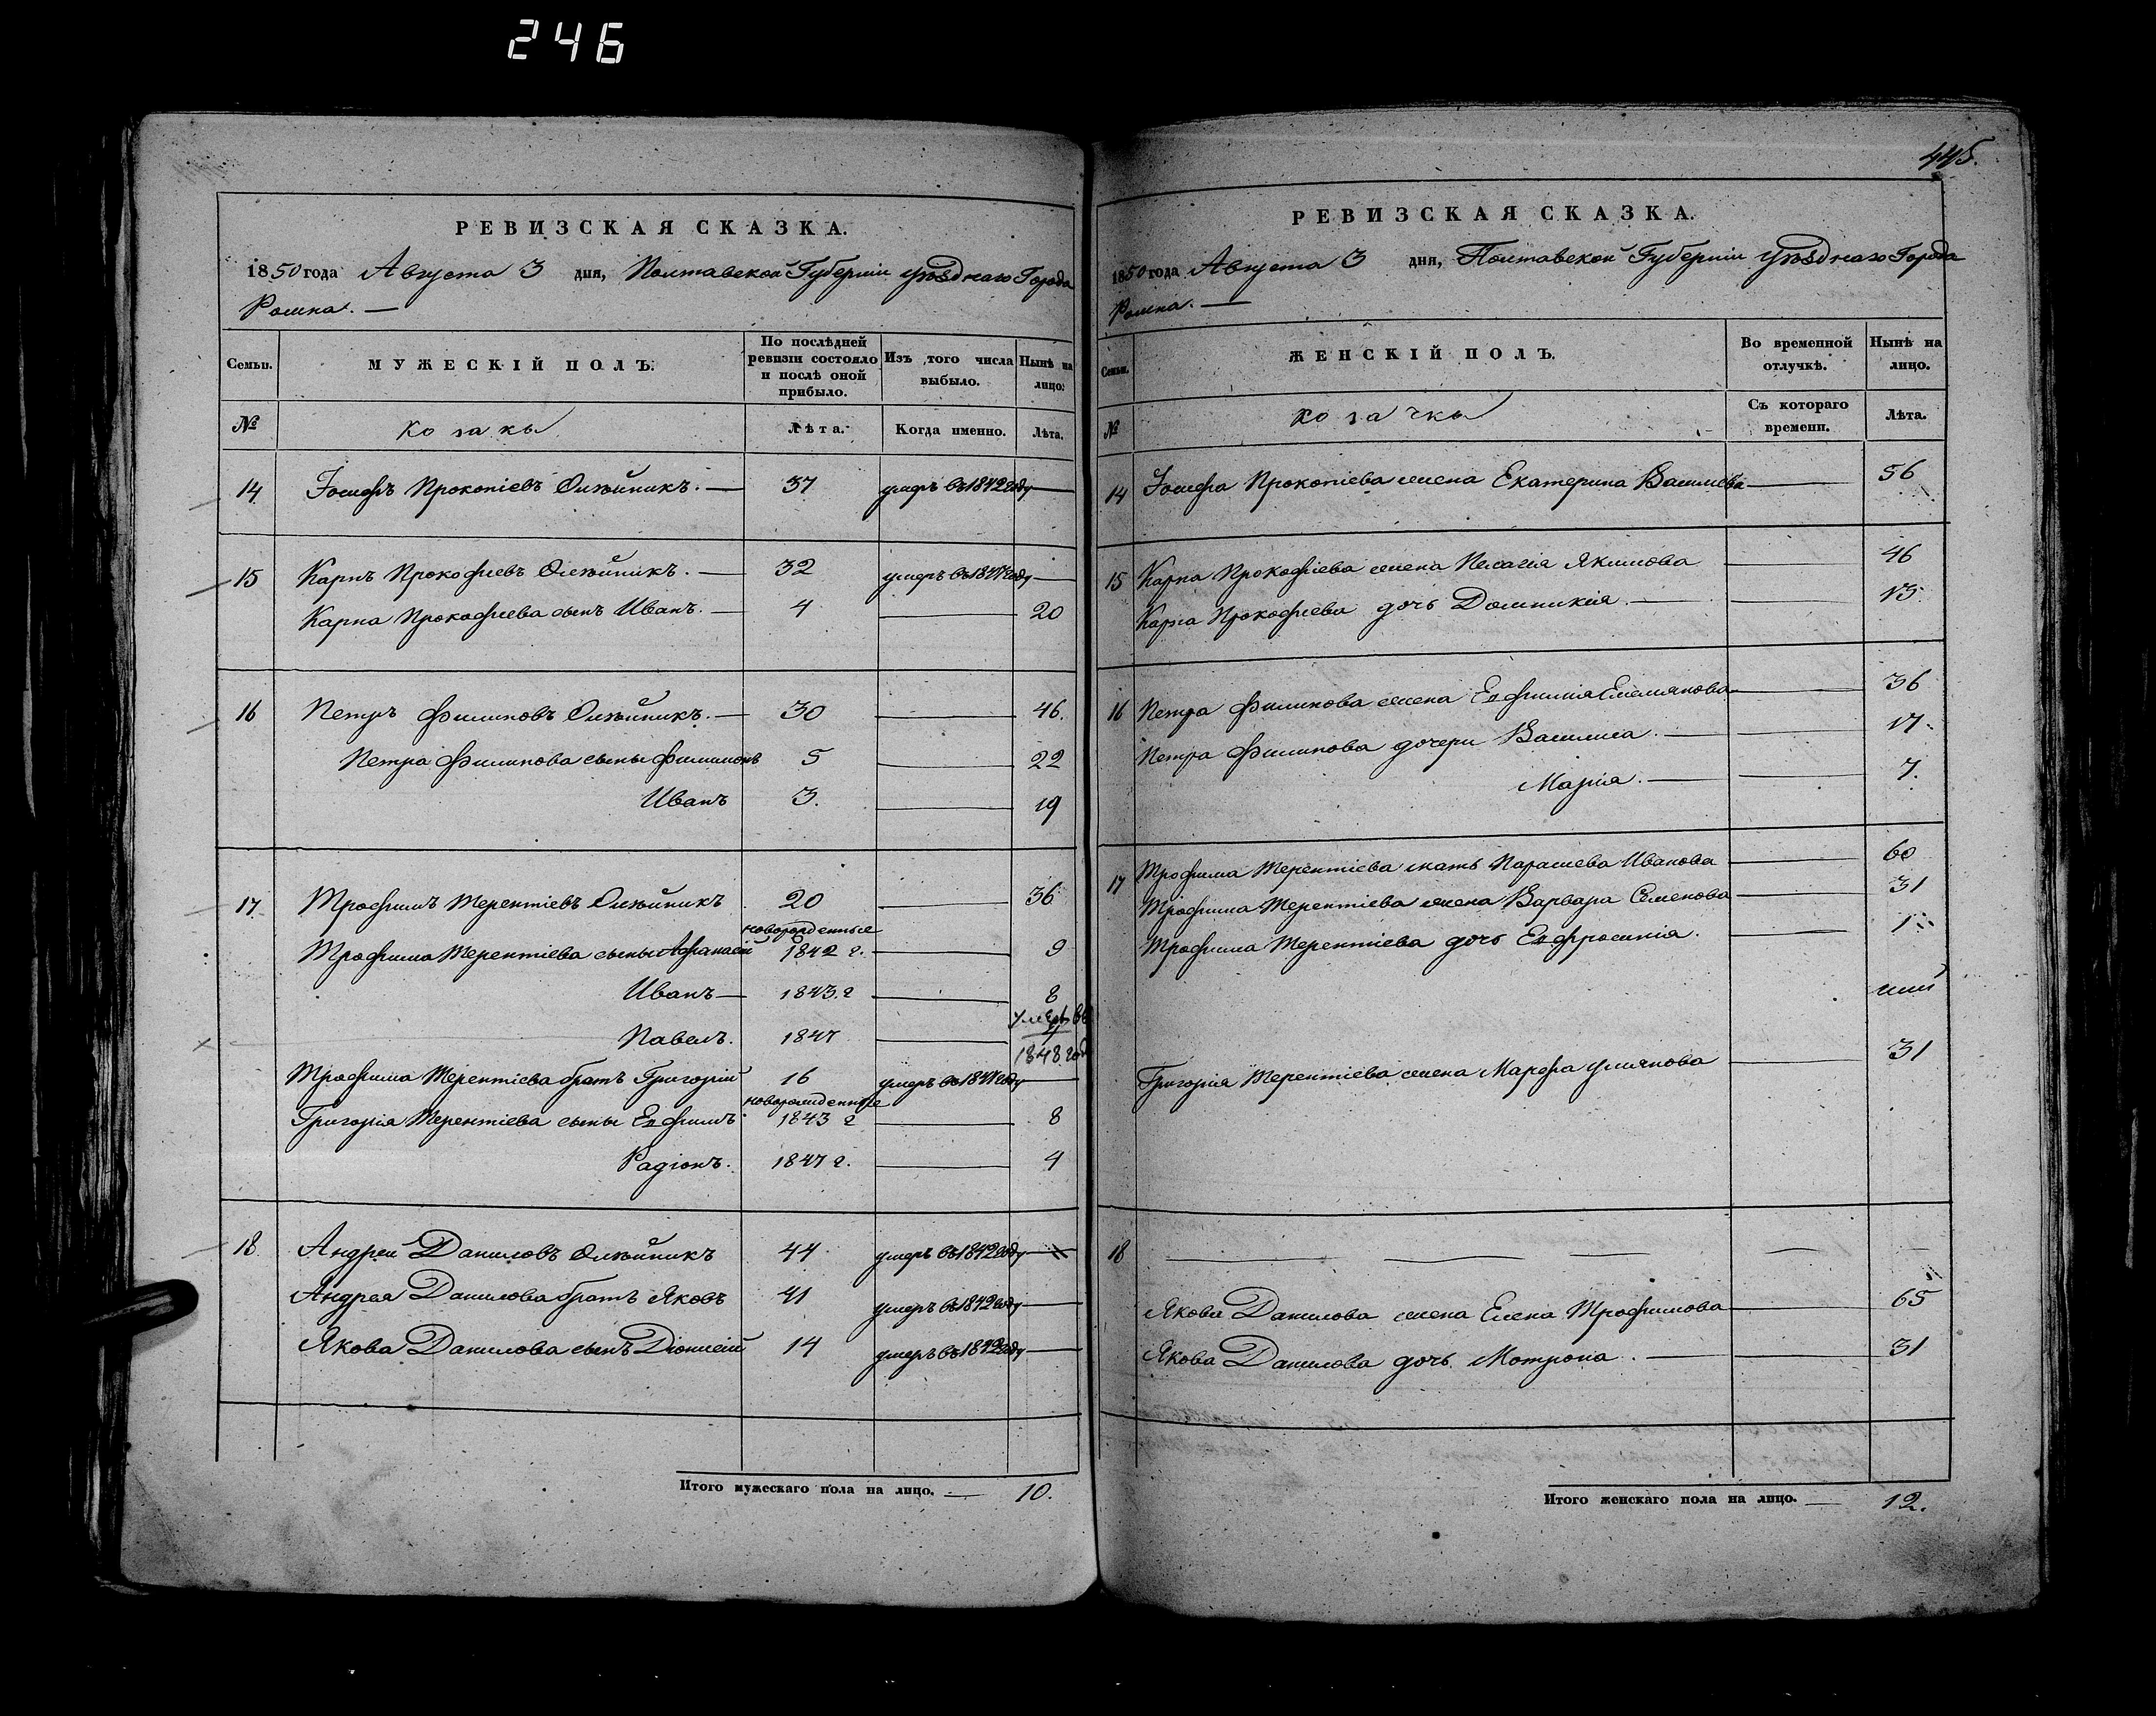 246
РЕВИЗСКАЯ СКАЗКА.
1850 года Августа 3 дня, Полтавской Губерніи уѣзднаго Города
Ромна. —
Семьи.
МУЖЕСКІЙ ПОЛЪ.
По послѣдней ревизіи состояло и послѣ оной прибыло.
Изъ того числа выбыло.
Нынѣ на лицо.
№
козаки
Лѣта.
Когда именно.
Лѣта.
14 Іосифъ Прокопіевъ Олѣйникъ. — 37 умеръ въ 1842 году —
15 Карпъ Прокофіевъ Олѣйникъ. — 32 умеръ въ 1847 году —
Карпа Прокофіева сынъ Иванъ. — 4 — 20
16 Петръ Филиповъ Олѣйникъ. — 30 — 46.
Петра Филипова сыны Филимонъ 5 — 22
Иванъ 3. — 19
17 Трофимъ Терентіевъ Олѣйникъ 20 — 36
новорожденные
Трофима Терентіева сыны Афанасій 1842 г. — 9
Иванъ — 1843. г — 8
Павелъ. 1847 — 4
умеръ въ
1848 год
Трофима Терентіева братъ Григорій 16 умеръ въ 1847 году —
новорожденные
Григорія Терентіева сыны Евфимъ 1843 г — 8
Радіонъ. 1847 г. — 4
18 Андрей Даниловъ Олѣйникъ 44 умеръ въ 1842 году —
Андрея Данилова братъ Яковъ 41 умеръ въ 1842 году —
Якова Данилова сынъ Діонисій 14 умеръ въ 1842 году —
Итого мужескаго пола на лицо. — 10.
445.
РЕВИЗСКАЯ СКАЗКА.
1850 года Августа 3 дня, Полтавской Губерніи уѣзднаго Города
Ромна. —
Семьи.
ЖЕНСКІЙ ПОЛЪ.
Во временной отлучкѣ.
Нынѣ на лицо.
№
козачки
Съ котораго времени.
Лѣта.
14 Іосифа Прокопіева жена Екатерина Васильева — 56
15 Карпа Прокофіева жена Пелагія Якимова — 46
Карпа Прокофіева дочь Домникія. — 13.
16 Петра Филипова жена Евфимія Емельянова — 36
Петра Филипова дочери Василиса. — 17.
Марія. — 7.
17 Трофима Терентіева мать Параскева Иванова — 60
Трофима Терентіева жена Варвара Семенова — 31
Трофима Терентіева дочь Евфросинія. — 1
Григорія Терентіева жена Марфа — 31
18 — — — — —
Якова Данилова жена Елена Трофимова — 65
Якова Данилова дочь Мотрона. — 31
Итого женскаго пола на лицо. — 12.